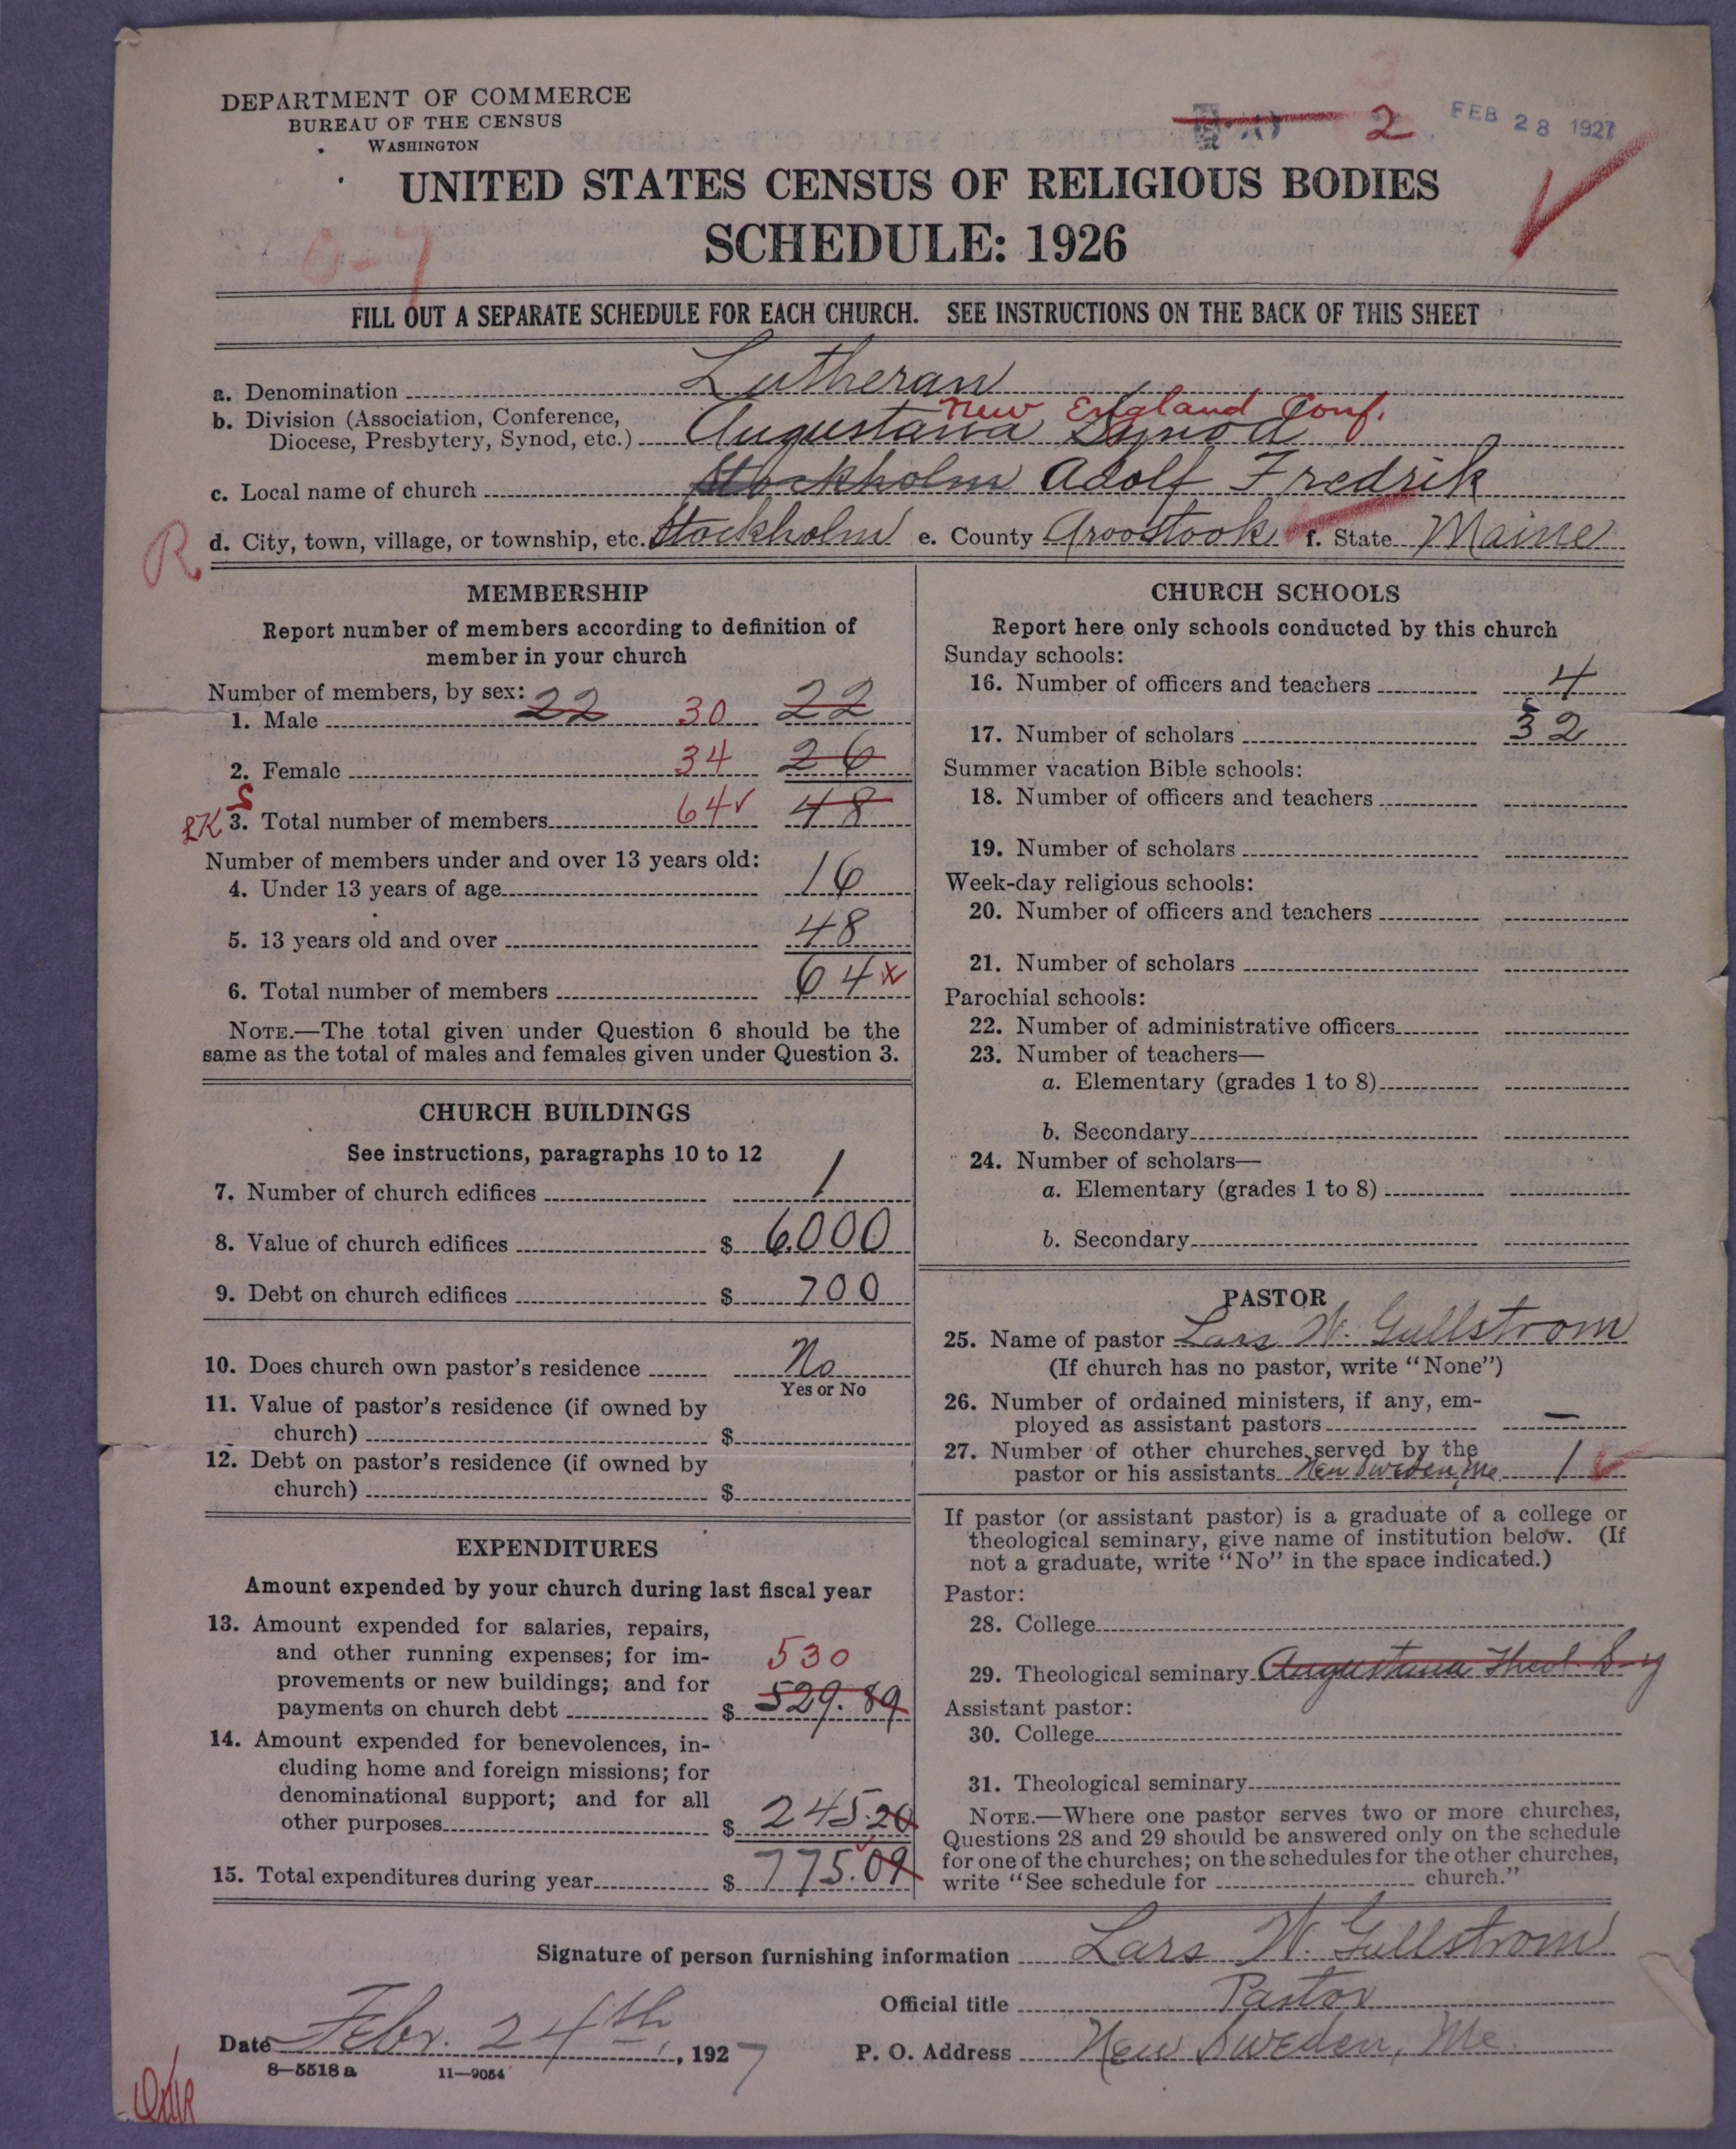 DEPARTMENT OF COMMERCE
BUREAU OF THE CENSUS
WASHINGTON
2
FEB 28 1927
UNITED STATES CENSUS OF RELIGIOUS BODIES
SCHEDULE: 1926
0-7
FILL OUT A SEPARATE SCHEDULE FOR EACH CHURCH. SEE INSTRUCTIONS ON THE BACK OF THIS SHEET
a. Denomination Lutheran
New England Conf.
b. Division (Association, Conference,
Diocese, Presbytery, Synod, etc.) Augustana Synod
c. Local name of church Stockholm Adolf Fredrik
R d. City, town, village, or township, etc. Stockholm e. County Aroostook f. State Maine
MEMBERSHIP
Report number of members according to definition of
member in your church
Number of members, by sex:
1. Male 22 30 22
2. Female 34 26
3. Total number of members 64 48
Number of members under and over 13 years old:
4. Under 13 years of age 16
5. 13 years old and over 48
6. Total number of members 64
NOTE.—The total given under Question 6 should be the
same as the total of males and females given under Question 3.
CHURCH BUILDINGS
See instructions, paragraphs 10 to 12
7. Number of church edifices 1
8. Value of church edifices $ 6000
9. Debt on church edifices $ 700
10. Does church own pastor's residence No
Yes or No
11. Value of pastor's residence (if owned by
church) $
12. Debt on pastor's residence (if owned by
church) $
EXPENDITURES
Amount expended by your church during last fiscal year
13. Amount expended for salaries, repairs,
and other running expenses; for im-
provements or new buildings; and for
530
payments on church debt $ 529.89
14. Amount expended for benevolences, in-
cluding home and foreign missions; for
denominational support; and for all
other purposes $ 245.20
15. Total expenditures during year $ 775.09
CHURCH SCHOOLS
Report here only schools conducted by this church
Sunday schools:
16. Number of officers and teachers 4
17. Number of scholars 32
Summer vacation Bible schools:
18. Number of officers and teachers
19. Number of scholars
Week-day religious schools:
20. Number of officers and teachers
21. Number of scholars
Parochial schools:
22. Number of administrative officers
23. Number of teachers—
a. Elementary (grades 1 to 8)
b. Secondary
24. Number of scholars—
a. Elementary (grades 1 to 8)
b. Secondary
PASTOR
25. Name of pastor Lars W. Gullstrom
(If church has no pastor, write "None")
26. Number of ordained ministers, if any, em-
ployed as assistant pastors —
27. Number of other churches served by the
pastor or his assistants New Sweden, Me 1
If pastor (or assistant pastor) is a graduate of a college or
theological seminary, give name of institution below. (If
not a graduate, write "No" in the space indicated.)
Pastor:
28. College
29. Theological seminary Augustana Theol S-y
Assistant pastor:
30. College
31. Theological seminary
NOTE.—Where one pastor serves two or more churches,
Questions 28 and 29 should be answered only on the schedule
for one of the churches; on the schedules for the other churches,
write "See schedule for church."
Signature of person furnishing information Lars W. Gullstrom
Official title Pastor
Date Febr. 24th, 1927
P. O. Address New Sweden, Me.
8—5518a 11—9054